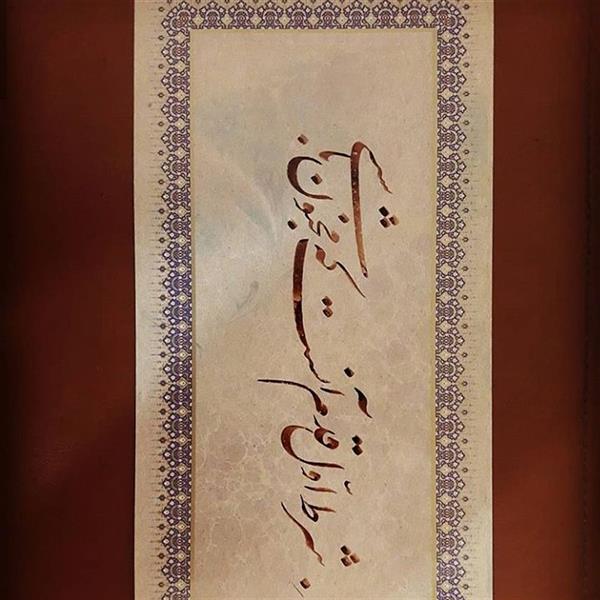 شرط اول قدم آنست که مجنون باشی